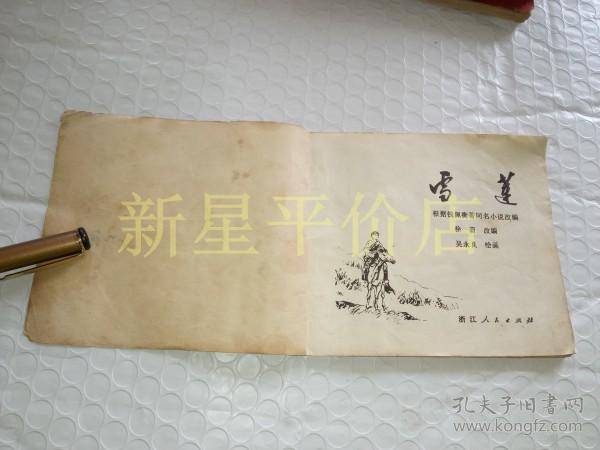 雪莲
根据权佩衡著同名小说改编
徐 改编
吴永良 绘画
浙江人民出版社
新星平价店
孔夫子旧書网
www.kongfz.com